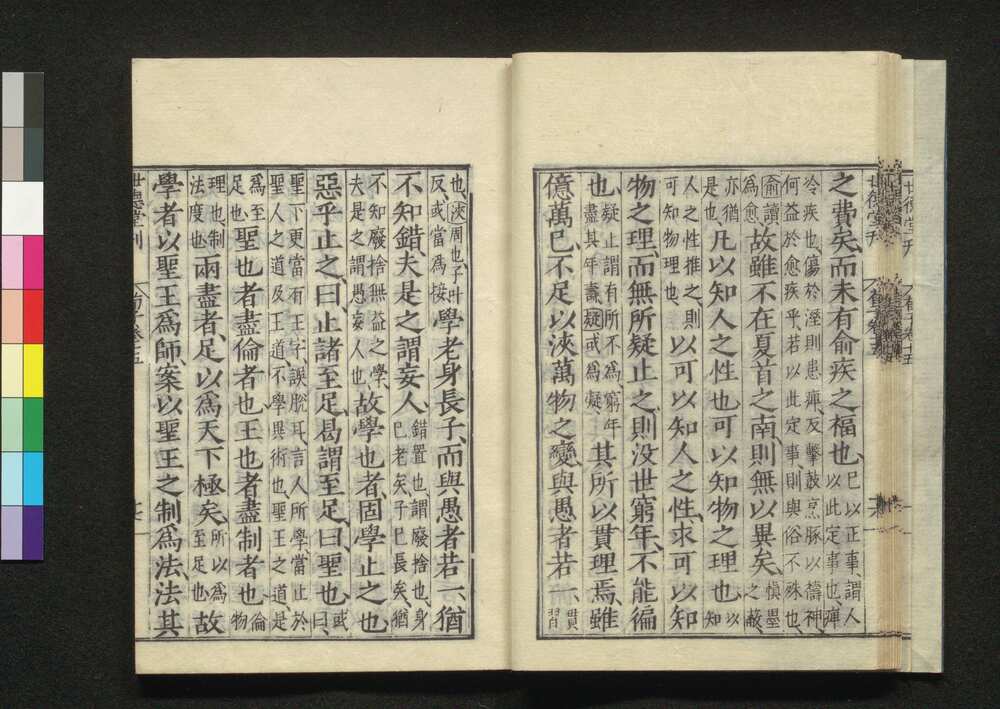 之費矣而未有俞疾之福也已以正事謂人以此定事也痺
冷疾也傷於溼則患痺反擊鼓烹豚以禱神何益於愈疾乎若以此定事則與俗不殊也
俞讀爲愈故雖不在夏首之南則無以異矣慎墨之蔽
亦猶是也凡以知人之性也可以知物之理也以知
人之性推之則可知物理也以可以知人之性求可以知
物之理而無所疑止之則没世窮年不能徧
也疑止謂有所不爲窮年盡其年壽疑或爲凝其所以貫理焉雖
億萬已不足以浹萬物之變與愚者若一貫習
也浹周也子叶反或當爲接學老身長子而與愚者若一猶
不知錯夫是之謂妄人錯置也謂廢捨也身已老矣子已長矣猶
不知廢捨無益之學夫是之謂愚妄人也故學也者固學止之也
惡乎止之曰止諸至足曷謂至足曰聖也或曰
聖下更當有王字誤脫耳言人所學當止於聖人之道及王道不學異術也聖王之道是
爲至足也聖也者盡倫者也王也者盡制者也倫物
理也制法度也兩盡者足以爲天下極矣所以爲至足也故
學者以聖王爲師案以聖王之制爲法法其
世德堂刊